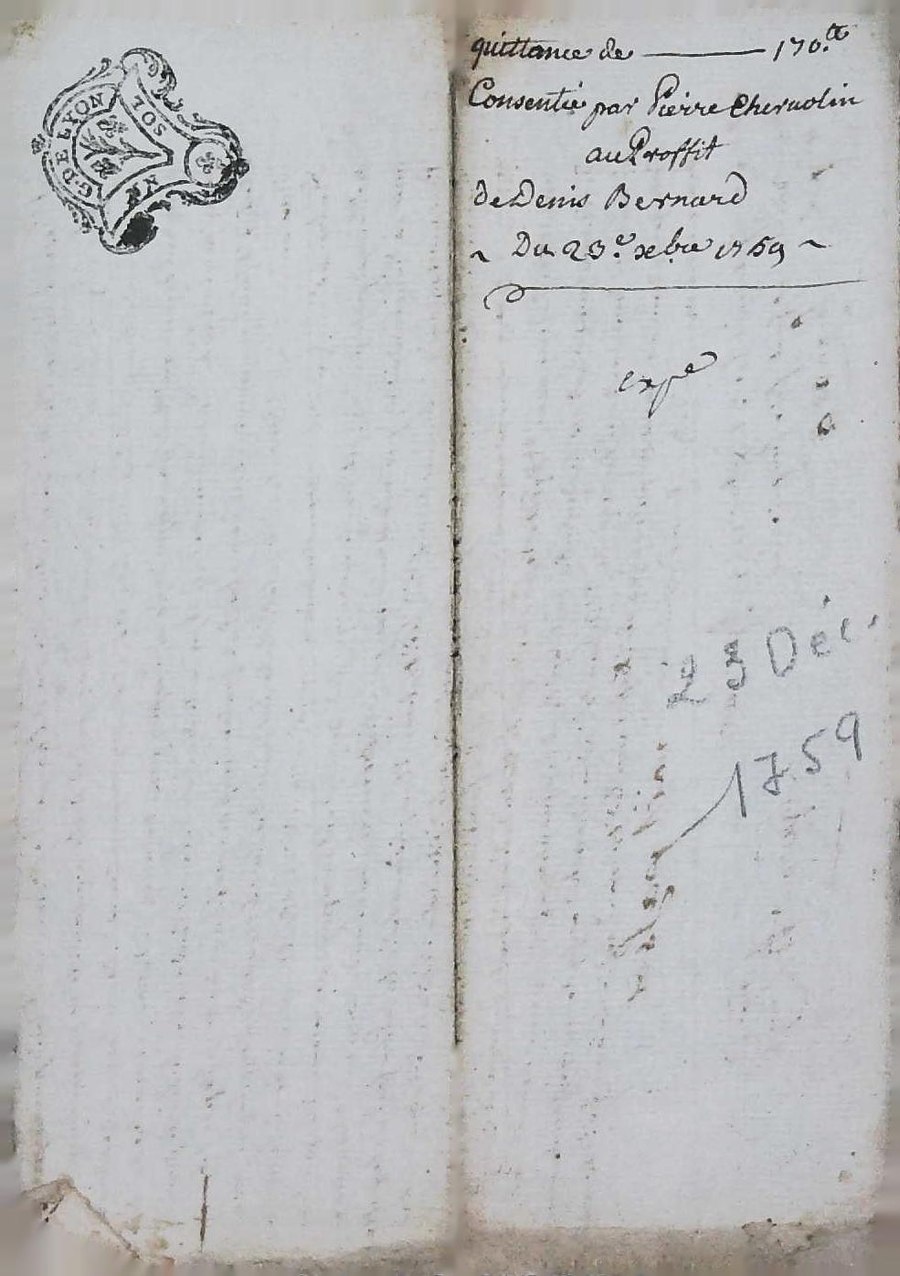 G. DE LYON
UN SOL
quittance de — 170.tt
Consentie par Pierre
au Proffit
de Denis Bernard
~ Du 23.e xbre 1759 ~
expe
23 Déc.
1759